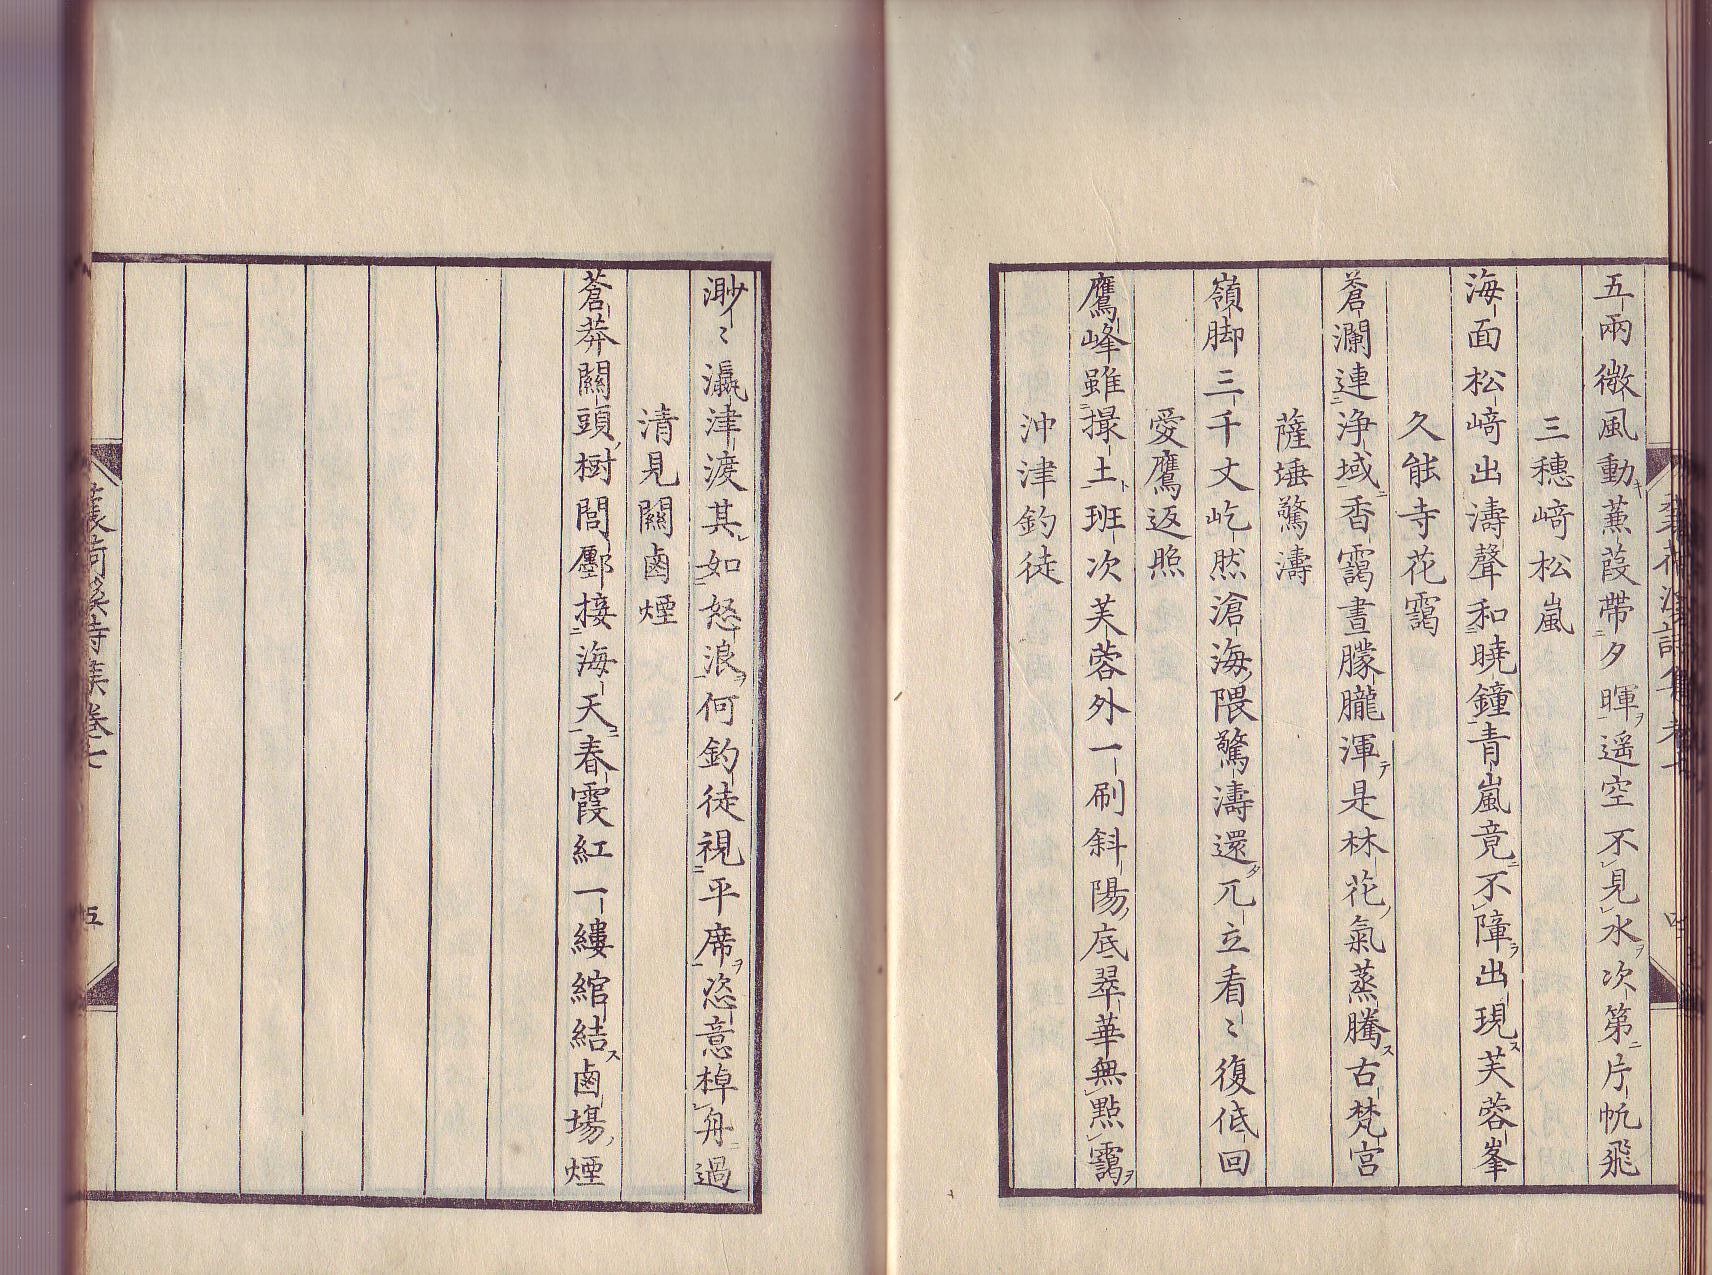 五兩微風動蒹葭帶夕暉遥空不見水次第片帆飛
三穗﨑松嵐
海面松﨑出濤聲和曉鐘青嵐竟不障出現芙蓉峯
久能寺花靄
蒼瀾連浄域香靄晝朦朧渾是林花氣蒸騰古梵宫
薩埵驚濤
嶺脚三千丈屹然滄海隈驚濤還兀立看〻復低回
愛鷹返照
鷹峰雖撮土班次芙蓉外一刷斜陽底翠華無點靄
沖津釣徒
渺〻瀛津渡其如怒浪何釣徒視平席恣意棹舟過
清見關鹵煙
蒼莽關頭樹閭鄽接海天春霞紅一縷綰結鹵塲煙
詩集卷七
五